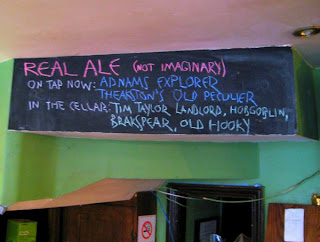 REAL ALE (NOT IMAGINARY)
ON TAP NOW: ADNAMS EXPLORER
THEAKSTON'S OLD PECULIER
IN THE CELLAR: TIM TAYLOR LANDLORD, HOBGOBLIN,
BRAKSPEAR, OLD HOOKY